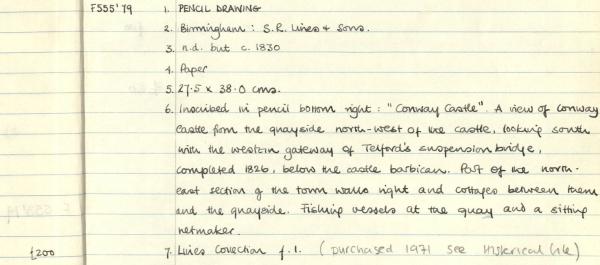 F555'79 1. PENCIL DRAWING
2. Birmingham: S.R. Lines & Sons.
3. n.d. but c. 1830
4. Paper
5. 27.5 x 38.0 cms.
6. Inscribed in pencil bottom right: "Conway Castle". A view of Conway
Castle from the quayside north-west of the castle, looking south
with the western gateway of Telford's suspension bridge,
completed 1826, below the castle barbican. Part of the north-
east section of the town walls right and cottages between them
and the quayside. Fishing vessels at the quay and a sitting
netmaker.
£200 7. Lines Collection f.1. (purchased 1971 see Historical file)